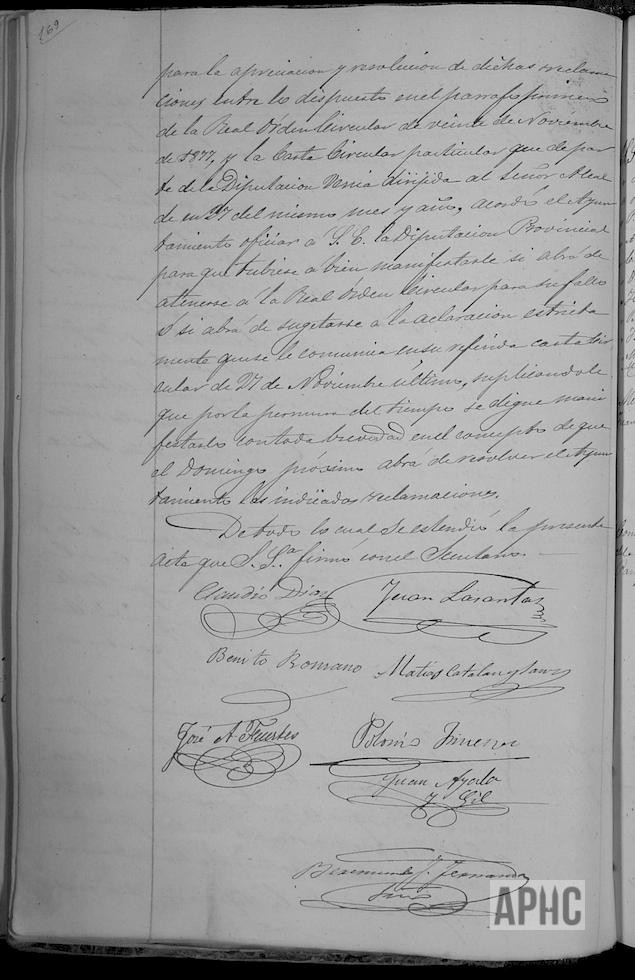 169
para la apreciacion y resolucion de dichas reclama
ciones entre lo dispuesto en el parrafo primero
de la Real Orden Circular de veinte de Noviembre
de 1877, y la Carta Circular particular que de par
te de la Diputacion Venia dirijida al Señor Alcal
de en 27 del mismo mes y año, acordó el Ayun
tamiento oficiar á S. E. la Diputacion Provincial
para que tubiese á bien manifestarle si abrá de
atenerse á la Real Orden Circular para su fallo
ó si abrá de sugetarse á la aclaracion estricta
mente que se le comunica en su referida carta Cir
cular de 27 de Noviembre último, suplicandole
que por la premura del tiempo se digne mani
festarlo con toda brevedad en el concepto de que
el Domingo próximo abrá de resolver el Ayun
tamiento las indicadas reclamaciones.
De todo lo cual se estendió la presente
acta que S. Sª firmó con el Secretario.
Claudio Diaz Juan Lasantas
Benito Romano Matias Catalan y
José A. Fuertes Polonio Jimenez
Juan Ayala
y Gil
Bienvenido J.
APHC